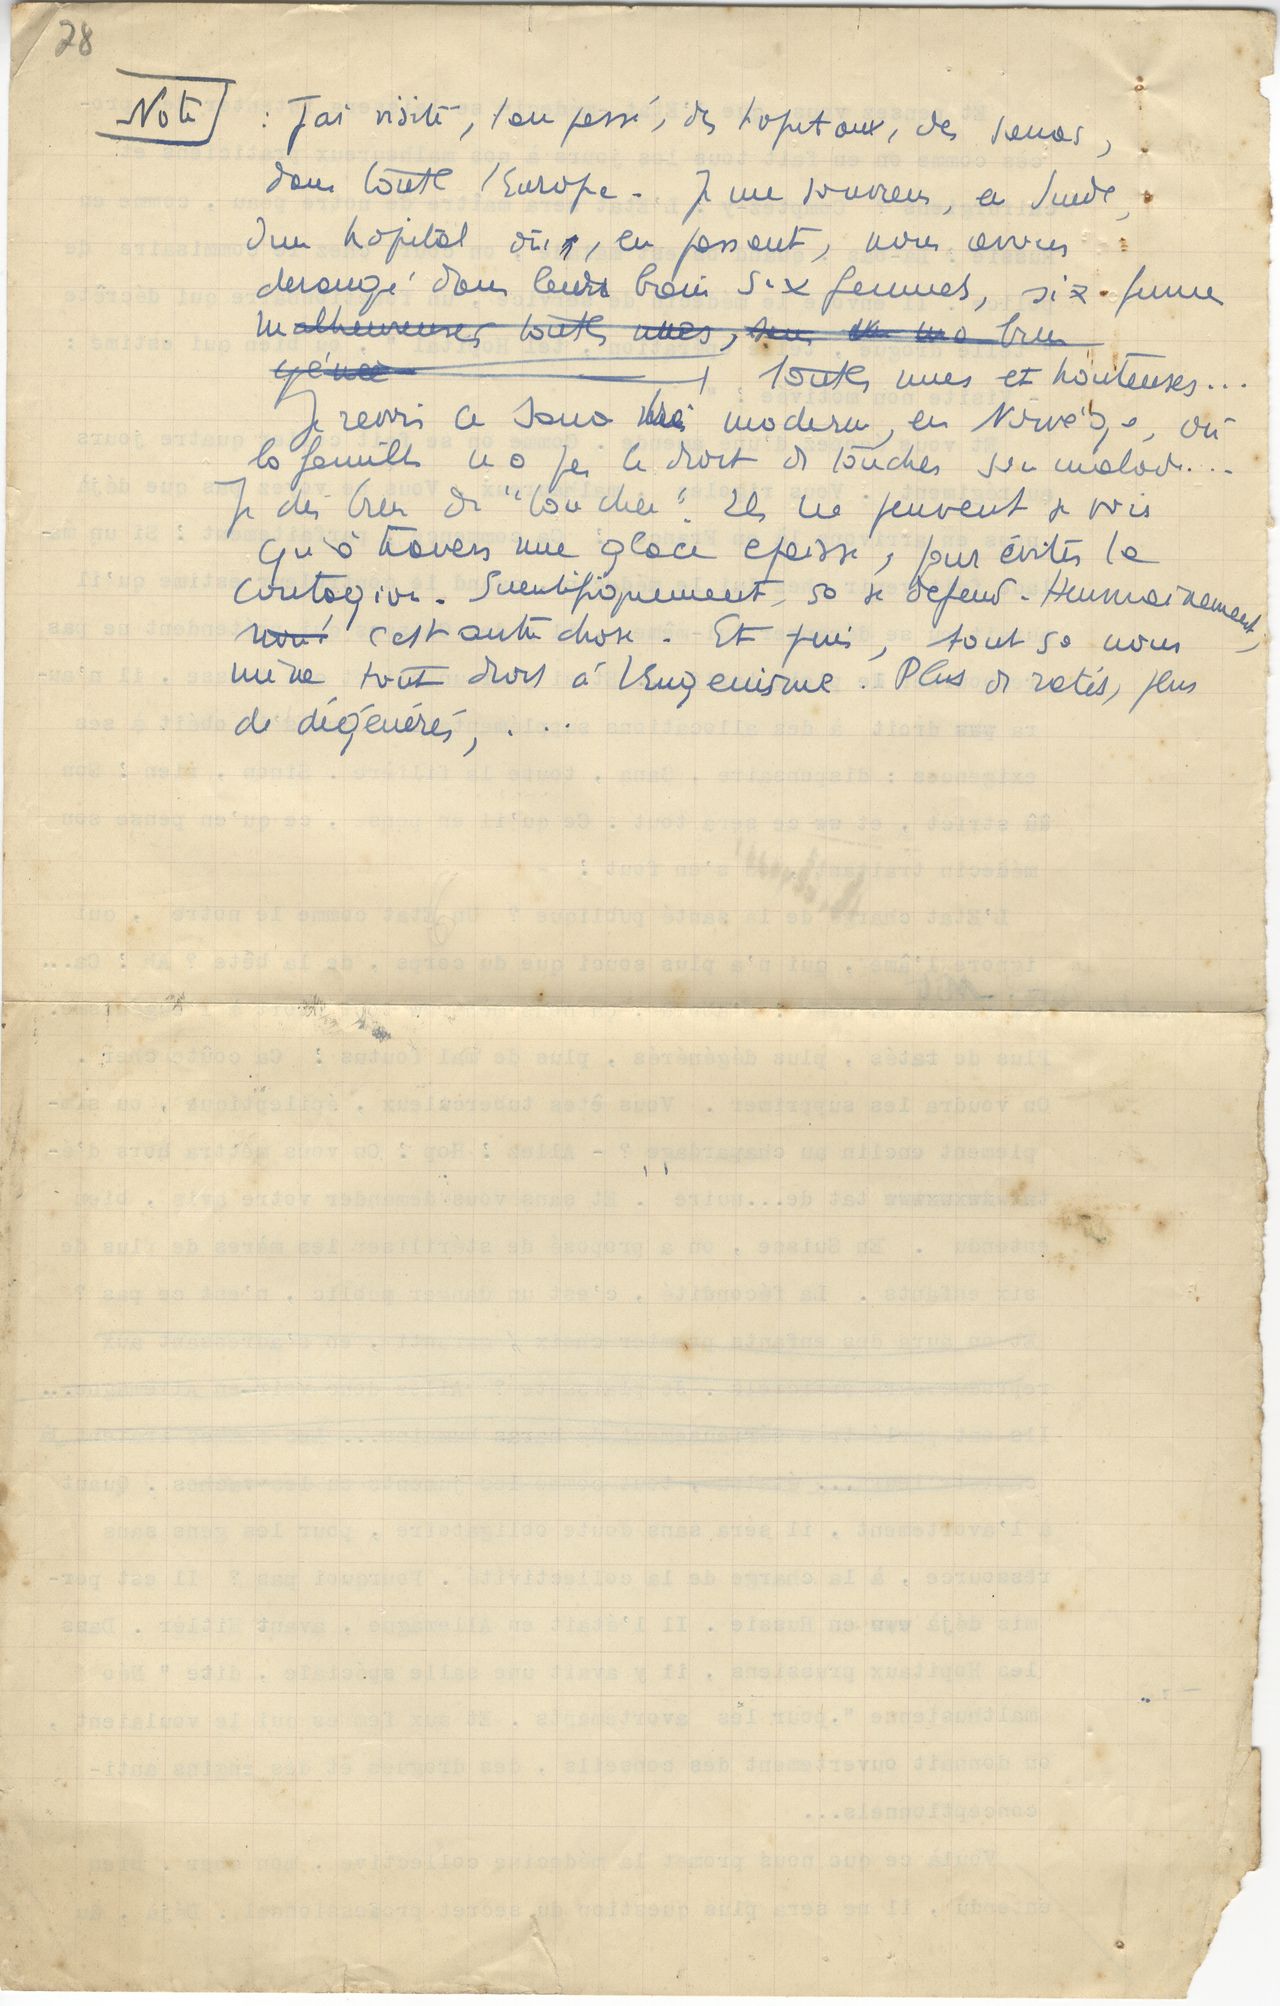 28
Note : J'ai visité, l'an passé, des hopitaux, des sanas,
dans toute l'Europe. Je me souviens, en Suède,
d'un hopital où, en passant, nous avons
derangé dans leur bain six femmes, six femmes
malheureuses toutes nues, bien
génée toutes nues et honteuses...
Je revois ce sana très moderne, en Norvège, où
la famille n'a pas le droit de toucher son malade...
Je dis bien de "toucher". Ils ne peuvent se voir
qu'à travers une glace epaisse, pour éviter la
contagion. Scientifiquement, sa se defend. Humainement,
non! c'est autre chose. Et puis, tout sa nous
mène tout droit à l'Eugenisme. Plus de ratés, plus
de dégénérés, ...